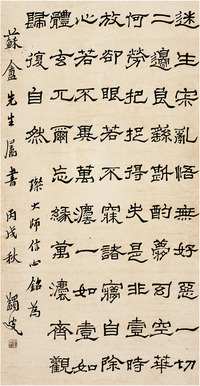 迷生宋亂悟無好惡一切
二邊良繇斟酌夢幻空華
何勞把捉得失是非壹時
放卻眼若不寐諸㝱自除
心若不異萬灋一如壹如
體玄兀爾忘緣萬灋齊觀
歸復自然
璨大師信心銘為
蘇盦先生屬書 丙戌秋 蠲叟